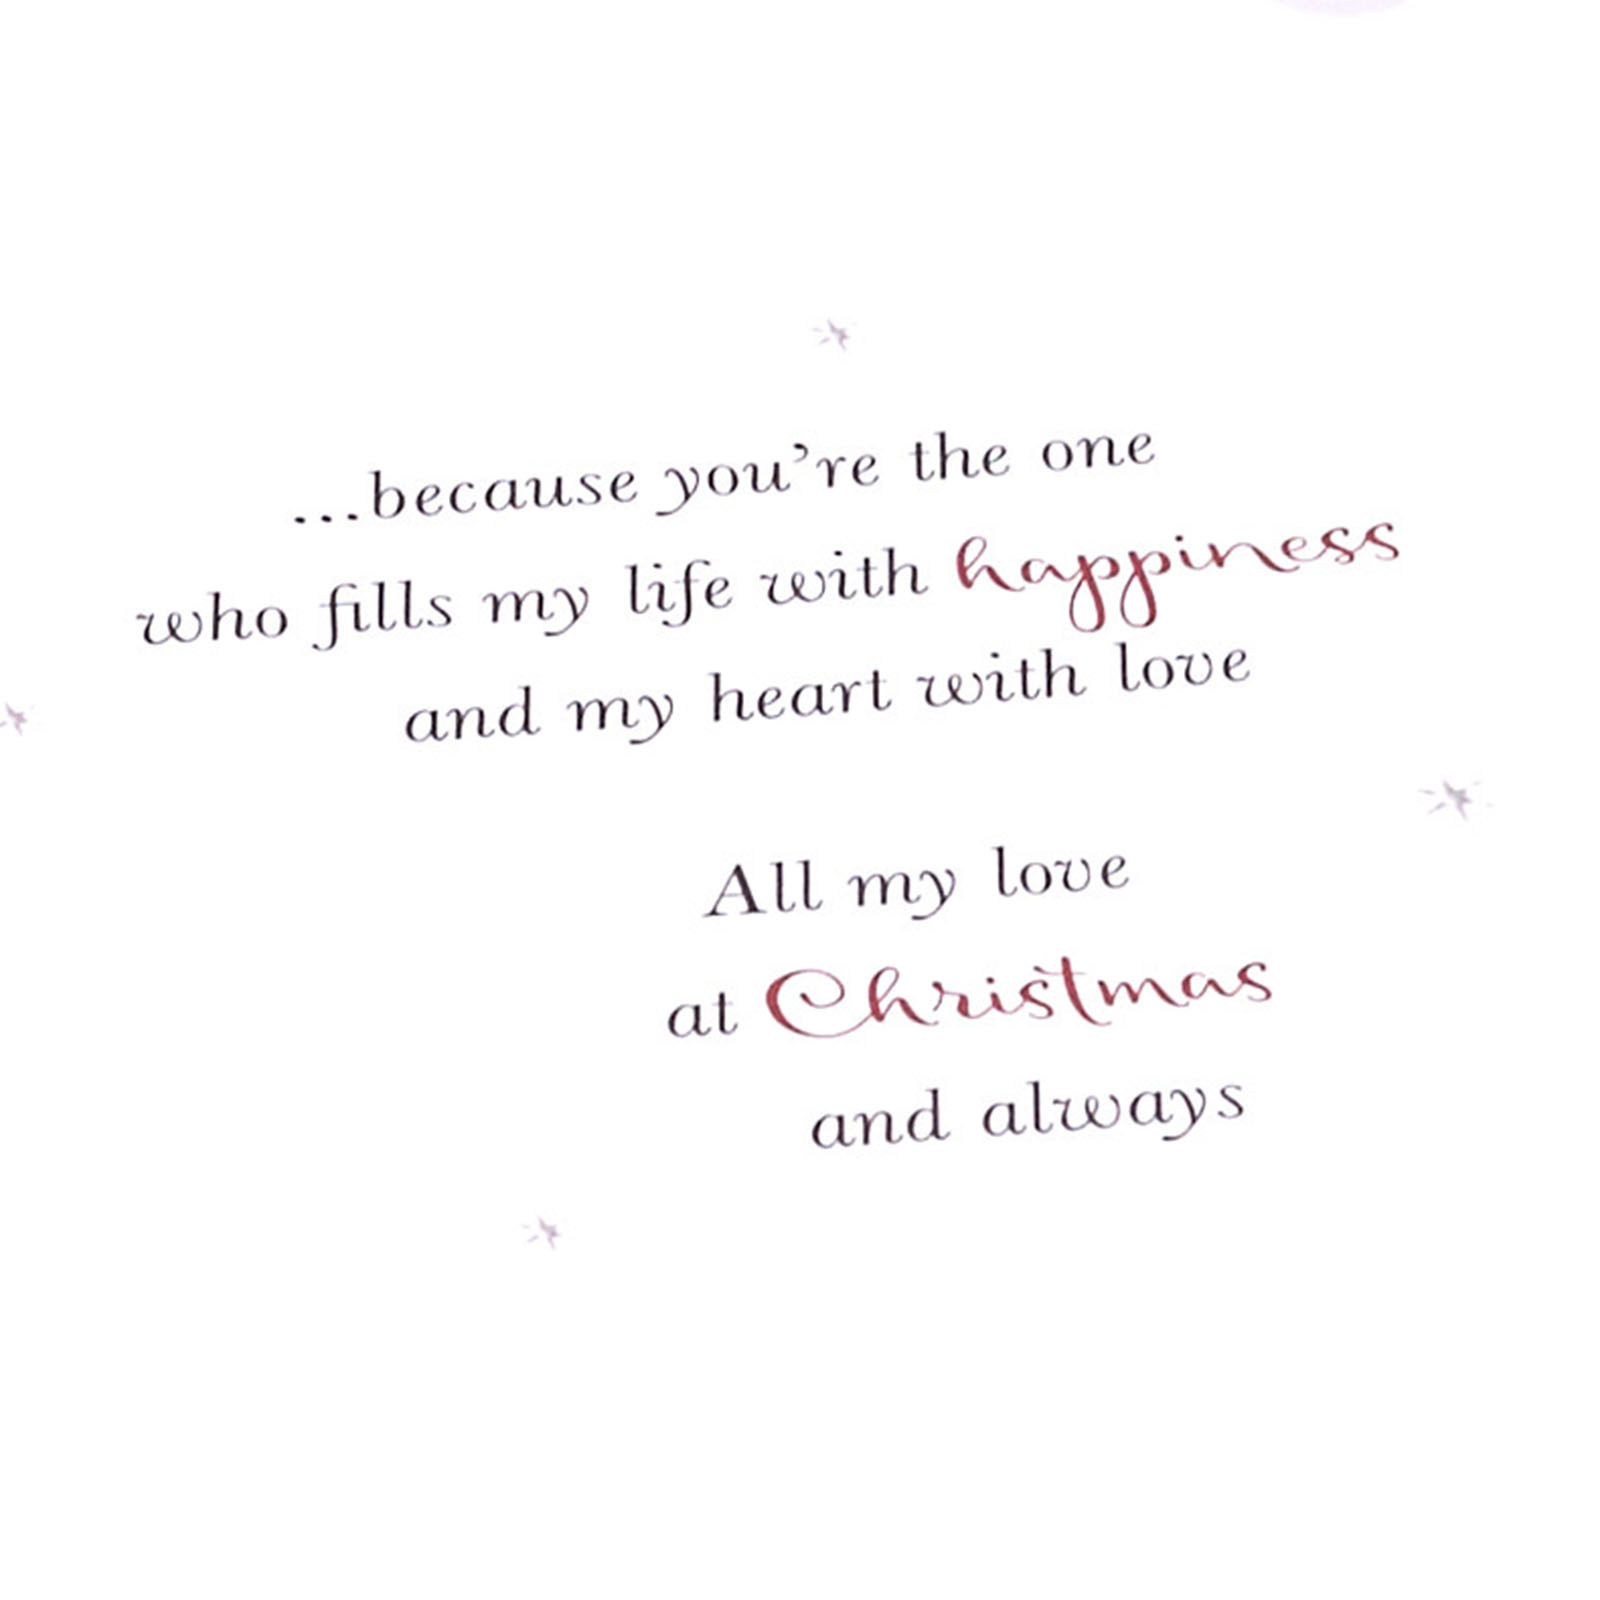 ...because you're the one
who fills my life with happiness
and my heart with love
All my love
at Christmas
and always